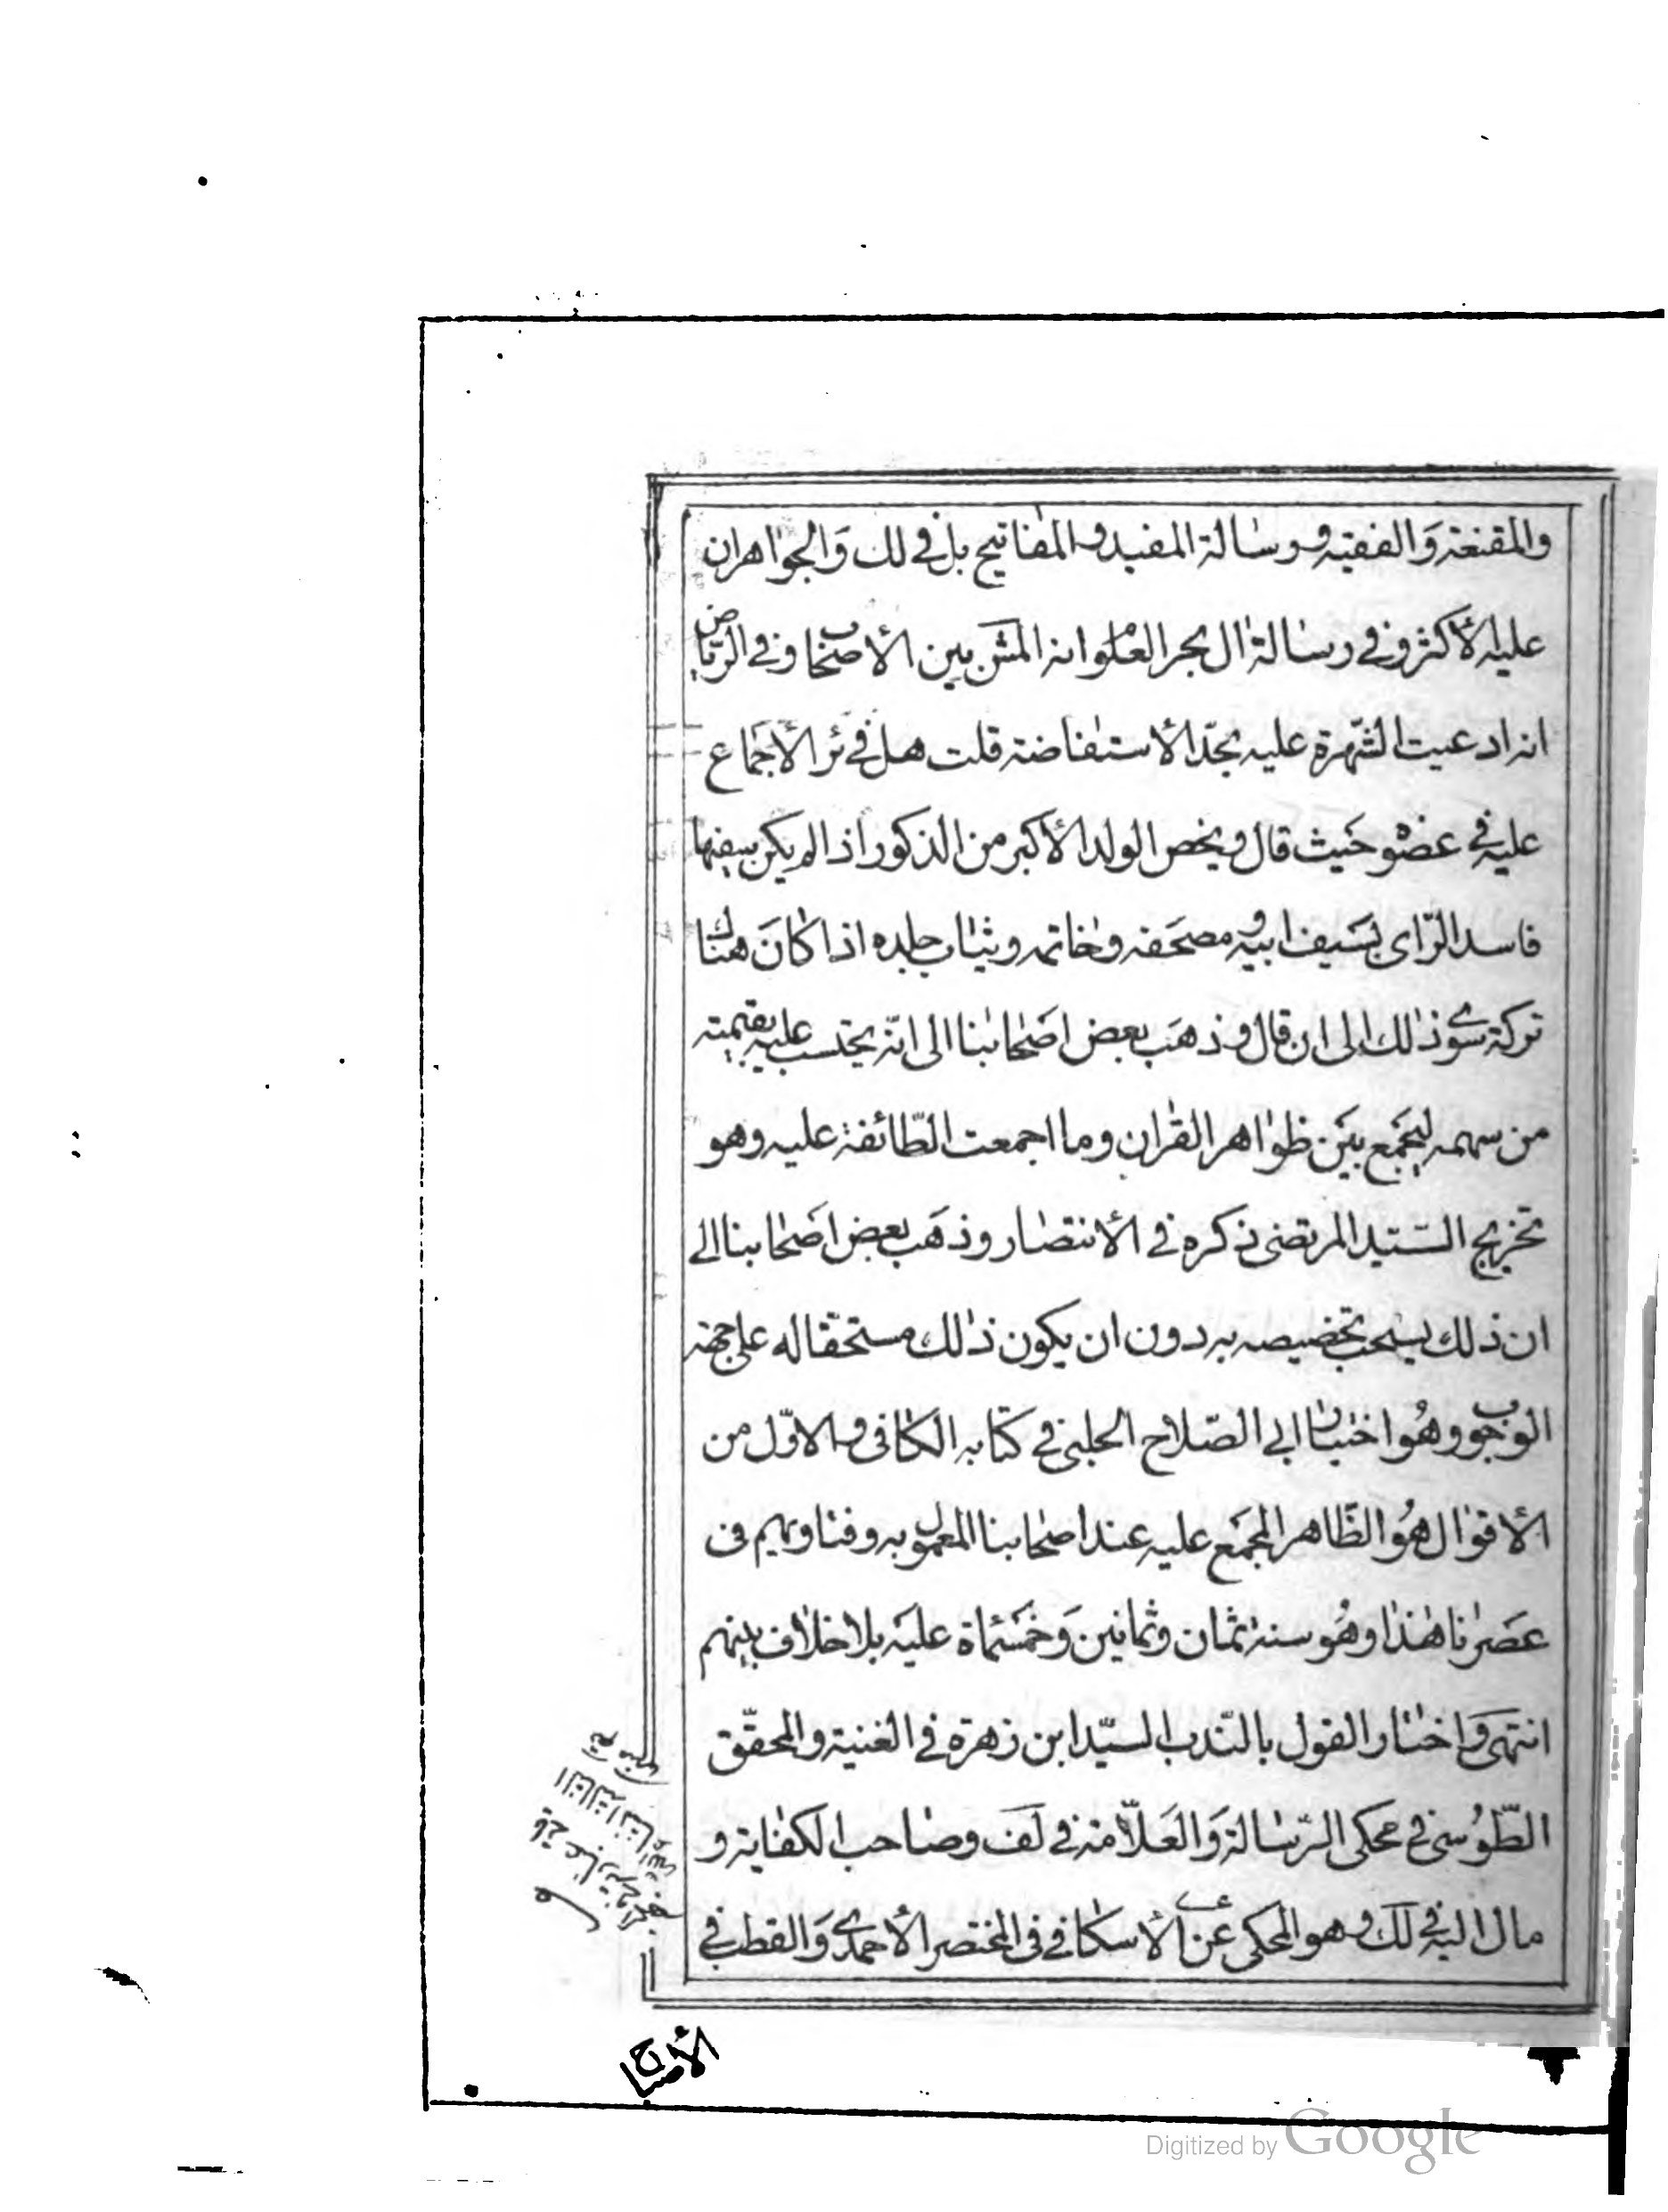 والمقنعة وَالفقيه ورسالة المفيد والمفاتيح بل فى لك وَالجواهر ان
عليه الأكثر وفي رسالة ال بحر العلو انه المش بين الأصحاب وفي الرياض
انه ادعيت الشّهرة عليه بحدّ الأستفاضة قلت هل في ئر الأجماع
عليه في عضو حَيث قال ويخص الولد الأكبر من الذكور اذا لم يكن سفيها
فاسد الرّاى بسَيف ابيه ومصحَفه وخاتمه وثياب جلده اذا كانَ هناك
تركة سوى ذلك الى ان قال وذهَب بعض اصَحابنا الى انّه يحتسب عليه بقيمته
من سهمه ليجمَع بيَن ظواهر القران وما اجمعت الطّائفة عليه وهو
تخريج السّيد المرتضى ذكره في الأنتصار وذهَب بعض اصَحابنا الى
ان ذلك يستحب تخصيصه به دون ان يكون ذلك مستحقّا له على جهة
الوجوب وهُو اختيار ابي الصّلاح الحلبي في كتابه الكافى والاوّل من
الأقوال هُو الظّاهر المجمَع عليه عند اصحابنا المعمول به وفتاويهم فى
عصَرنا هذا وهُو سنة ثمان وثمانين وَخمَسمأة عليَه بلا خلاف بينهم
انتهى وَاختار القول بالنّدب السيّد ابن زهرة في الغنية والمحقّق
الطّوُسي في محكى الرّسالة وَالعَلاّمة في لَف وصاحب الكفاية و
مال اليه في لك وهو المحكي عن الأسكافي فى المختصر الأحمدى وَالقطب في
الأصباح
Digitized by Google